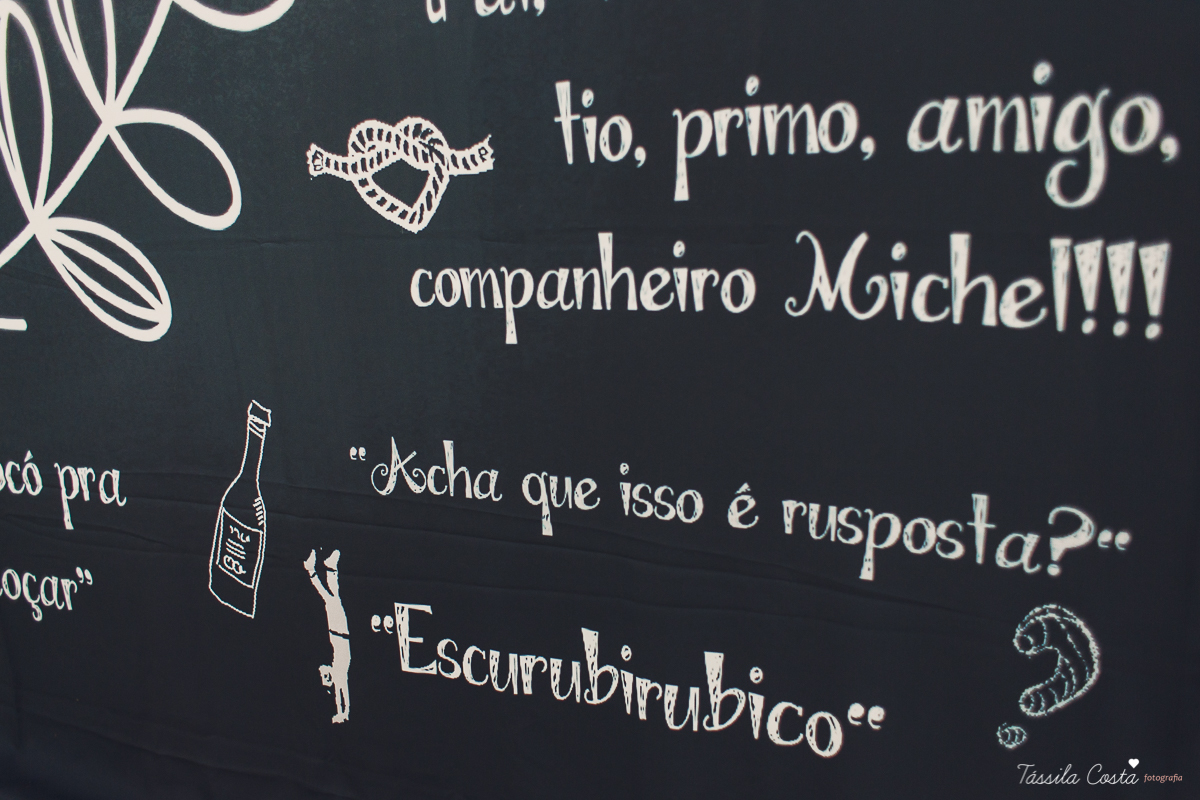 tio, primo, amigo,
companheiro Michel!!!!
pra
“Acha que isso é rusposta?“
“Escurubirubico“
Tássila Costa fotografia